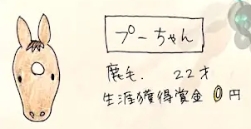 プーちゃん
鹿毛. 22才
生涯獲得賞金 0円